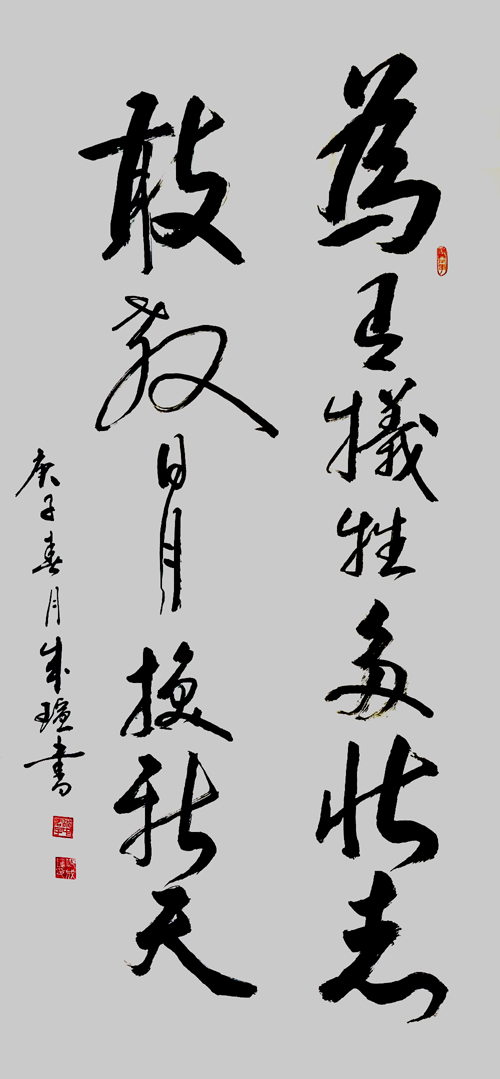 為有犧牲多壯志
敢教日月換新天
庚子春月成瑄書